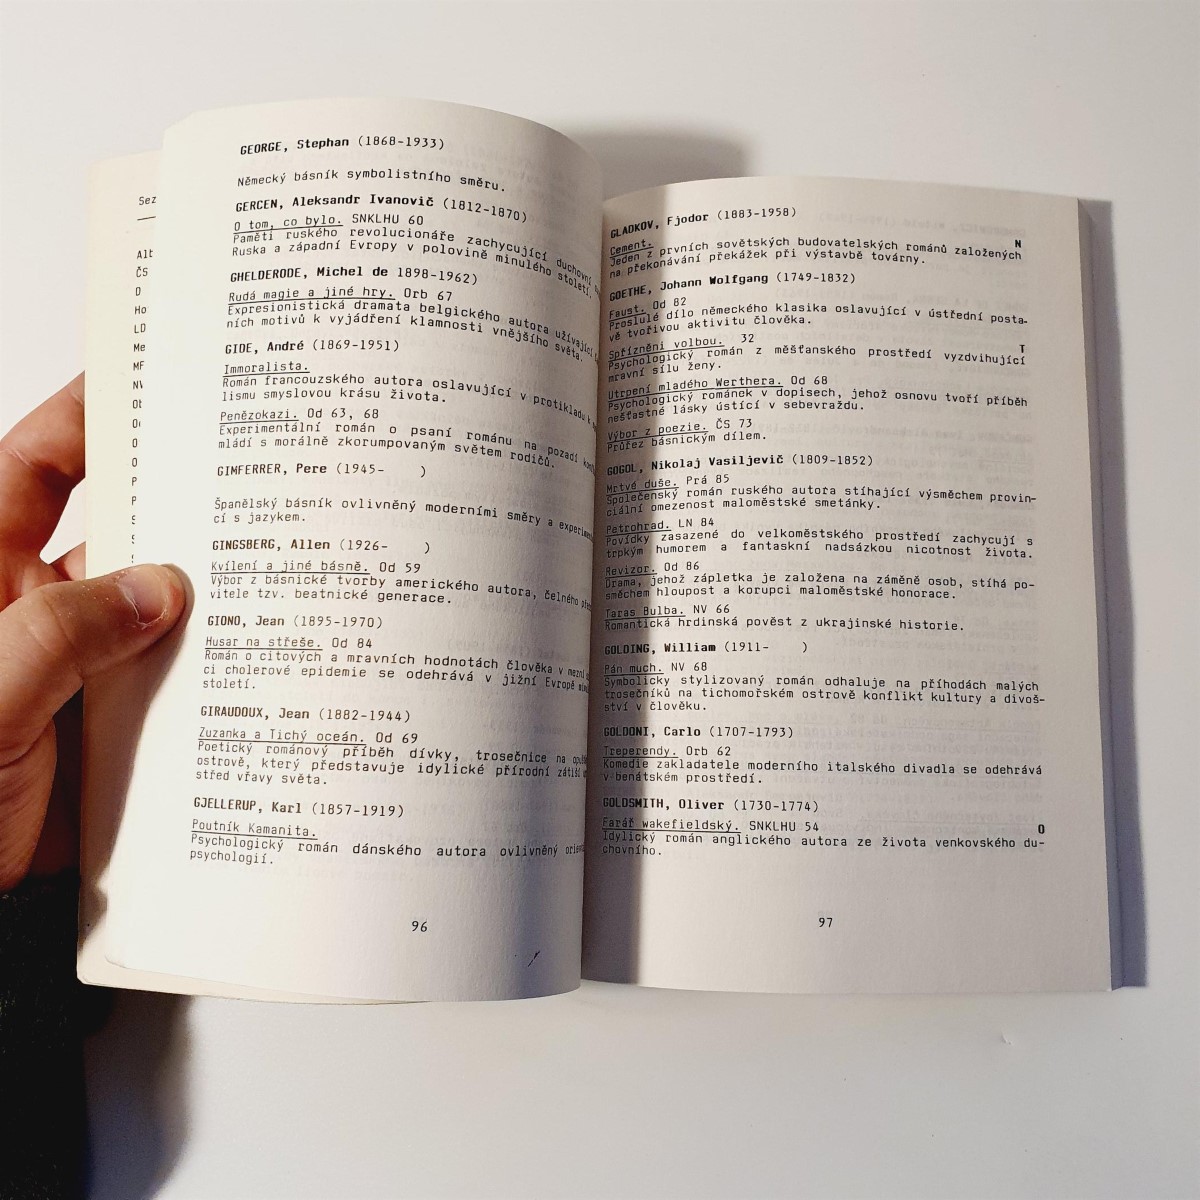 Sez
Alb
ČS
O
Ho
LD
Me
MF
NV
Ob
O
O
P
P
S
S
GEORGE, Stephan (1868-1933)
Německý básník symbolistního směru.
GERCEN, Aleksandr Ivanovič (1812-1870)
O tom, co bylo. SNKLHU 60
Paměti ruského revolucionáře zachycující duchovní
Ruska a západní Evropy v polovině minulého století.
GHELDERODE, Michel de 1898-1962)
Rudá magie a jiné hry. Orb 67
Expresionistická dramata belgického autora užívající
ních motivů k vyjádření klamnosti vnějšího světa.
GIDE, André (1869-1951)
Immoralista.
Román francouzského autora oslavující v protikladu k
lismu smyslovou krásu života.
Penězokazi. Od 63, 68
Experimentální román o psaní románu na pozadí
mládí s morálně zkorumpovaným světem rodičů.
GIMFERRER, Pere (1945- )
Španělský básník ovlivněný moderními směry a
cí s jazykem.
GINGSBERG, Allen (1926- )
Kvílení a jiné básně. Od 59
Výbor z básnické tvorby amerického autora, čelného
vitele tzv. beatnické generace.
GIONO, Jean (1895-1970)
Husar na střeše. Od 84
Román o citových a mravních hodnotách člověka v
ci cholerové epidemie se odehrává v jižní Evropě
století.
GIRAUDOUX, Jean (1882-1944)
Zuzanka a Tichý oceán. Od 69
Poetický románový příběh dívky, trosečnice na
ostrově, který představuje idylické přírodní zátiší
střed vřavy světa.
GJELLERUP, Karl (1857-1919)
Poutník Kamanita.
Psychologický román dánského autora ovlivněný
psychologií.
96
GLADKOV, Fjodor (1883-1958)
Cement. N
Jeden z prvních sovětských budovatelských románů založených
na překonávání překážek při výstavbě továrny.
GOETHE, Johann Wolfgang (1749-1832)
Faust. Od 82
Proslulé dílo německého klasika oslavující v ústřední posta-
vě tvořivou aktivitu člověka.
Spřízněni volbou. 32 T
Psychologický román z měšťanského prostředí vyzdvihující
mravní sílu ženy.
Utrpení mladého Werthera. Od 68
Psychologický románek v dopisech, jehož osnovu tvoří příběh
nešťastné lásky ústící v sebevraždu.
Výbor z poezie. ČS 73
Průřez básnickým dílem.
GOGOL, Nikolaj Vasiljevič (1809-1852)
Mrtvé duše. Prá 85
Společenský román ruského autora stíhající výsměchem provin-
ciální omezenost maloměstské smetánky.
Petrohrad. LN 84
Povídky zasazené do velkoměstského prostředí zachycují s
trpkým humorem a fantaskní nadsázkou nicotnost života.
Revizor. Od 86
Drama, jehož zápletka je založena na záměně osob, stíhá po-
směchem hloupost a korupci maloměstské honorace.
Taras Bulba. NV 66
Romantická hrdinská pověst z ukrajinské historie.
GOLDING, William (1911- )
Pán much. NV 68
Symbolicky stylizovaný román odhaluje na příhodách malých
trosečníků na tichomořském ostrově konflikt kultury a divoš-
ství v člověku.
GOLDONI, Carlo (1707-1793)
Treperendy. Orb 62
Komedie zakladatele moderního italského divadla se odehrává
v benátském prostředí.
GOLDSMITH, Oliver (1730-1774)
Farář wakefieldský. SNKLHU 54 O
Idylický román anglického autora ze života venkovského du-
chovního.
97